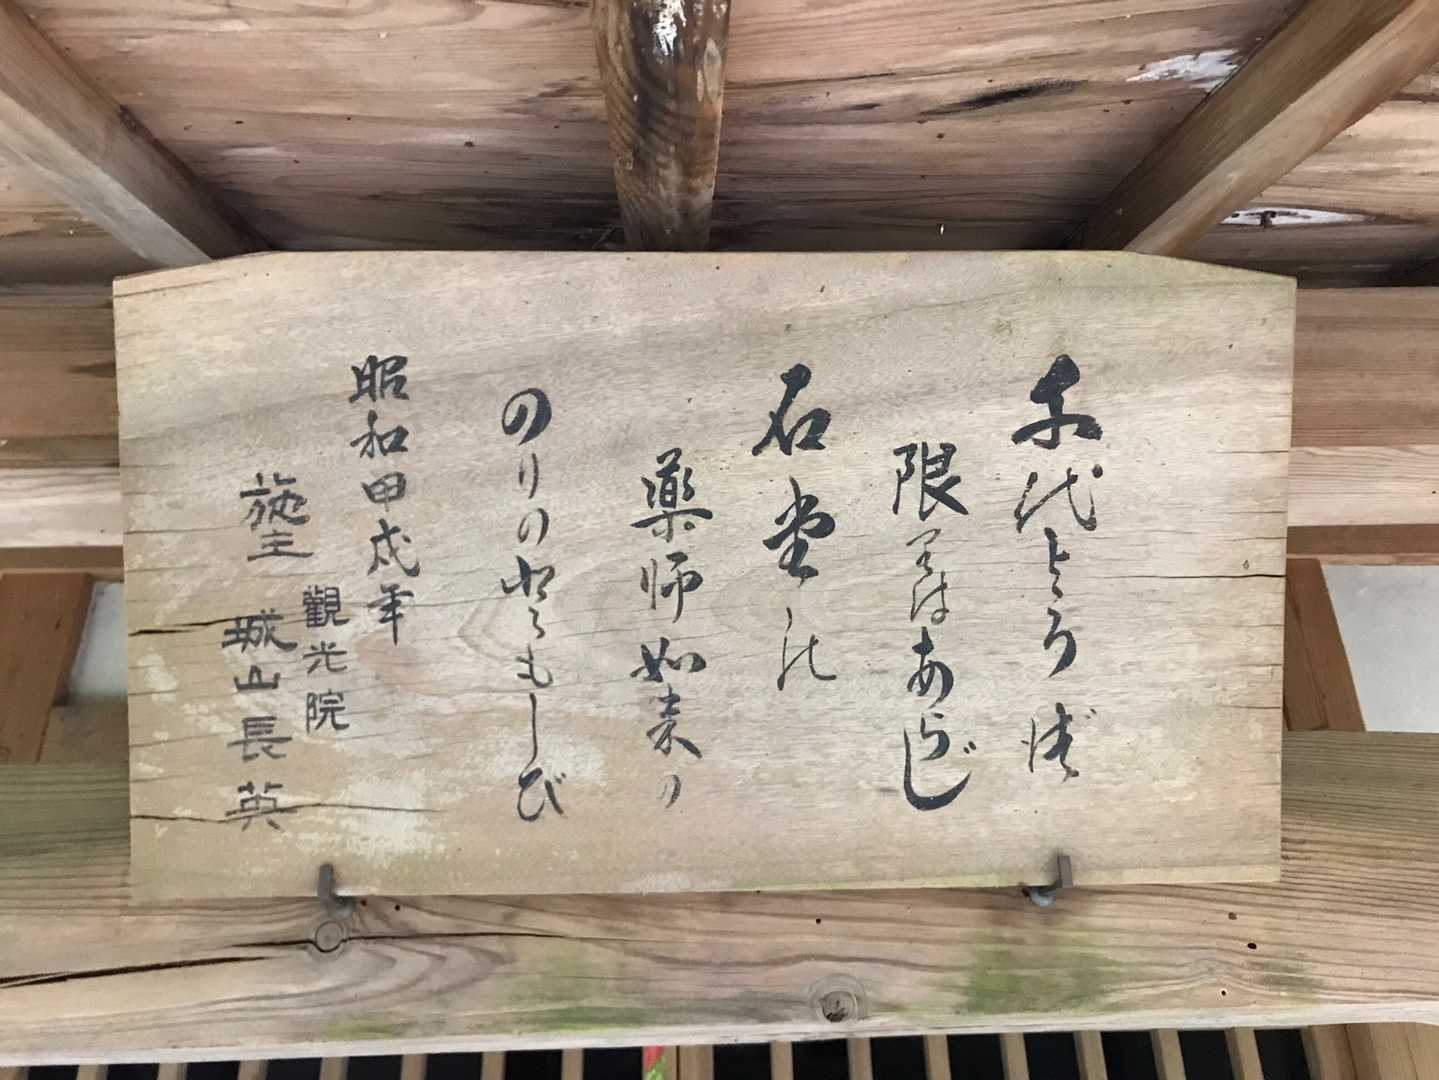 千代とるば
限りはあらじ
石堂の
薬師如来の
のりのともしび
昭和甲戌年
觀光院
施主 城山長英